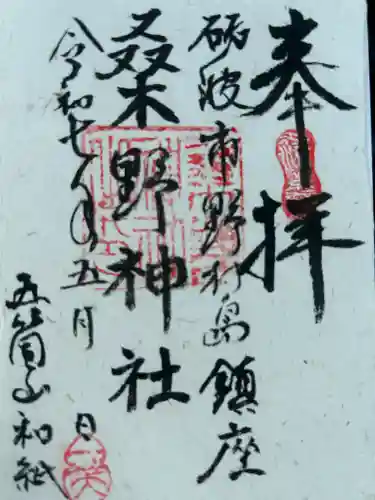 奉拝
砺波市野村島鎮座
桑野神社
令和七年五月 日
五箇山和紙